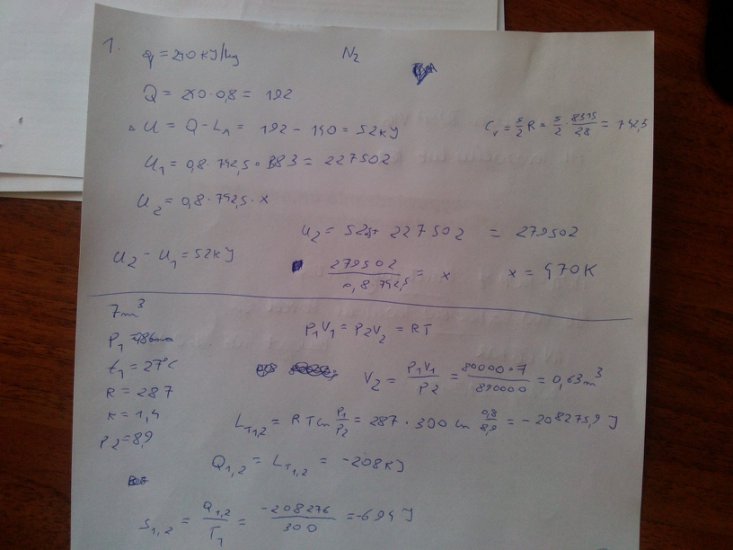 1. q = 240 KJ/kg N₂
Q = 240·0,8 = 192
ΔU = Q - L₁ = 192 - 140 = 52KJ
Cᵥ = 5/2 R = 5/2 · 8315/28 = 742,5
U₁ = 0,8·742,5·383 = 227502
U₂ = 0,8·742,5·x
U₂ = 52+ 227502 = 279502
U₂ - U₁ = 52KJ
279502/0,8·742,5 = x x = 470K
7m³
P₁V₁ = P₂V₂ = RT
P₁
t₁ = 27°C
V₂ = P₁V₁/P₂ = 80000·7/890000 = 0,63m³
R = 287
K = 1,4
L_T1,2 = RT ln P₁/P₂ = 287 · 300 ln 0,8/8,9 = -208275,9 J
P₂ = 8,9
Q₁,₂ = L_T1,2 = -208KJ
S₁,₂ = Q₁,₂/T₁ = -208276/300 = -694 J